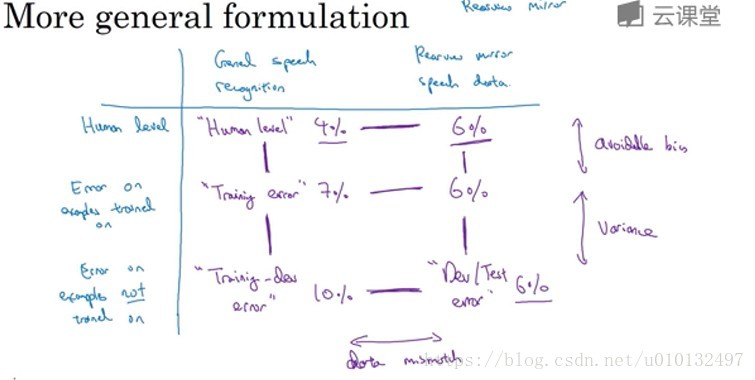 More general formulation
Rearview mirror
云课堂
General speech
recognition
Rearview mirror
speech data.
Human level
"Human level" 4%
6%
avoidable bias
Error on
examples trained
on
"Training error" 7%
6%
Variance
Error on
examples not
trained on
"Training-dev
error"
10%
"Dev/Test
error"
6%
data mismatch
https://blog.csdn.net/u010132497